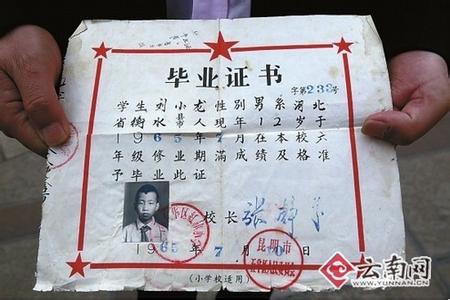 毕业证书
字第238号
学生刘小龙性别男系河北
省衡水县人现年12岁于
1965年7月在本校六
年级修业期满成绩及格准
予毕业此证
校长
1965年7月10日
昆明市
(小学校适用)
云南网
WWW.YUNNAN.CN